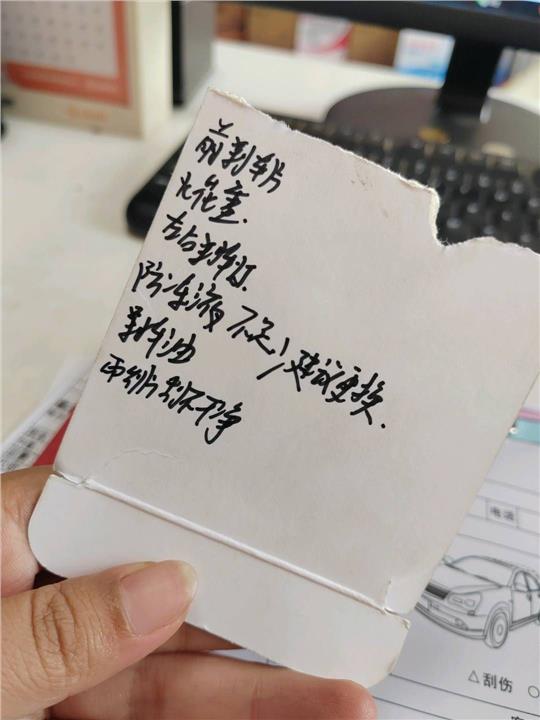 前刹车片
火花塞.
左右主销灯.
防冻液不足,建议更换.
刹车油
雨刮片刮不干净
电话
△刮伤